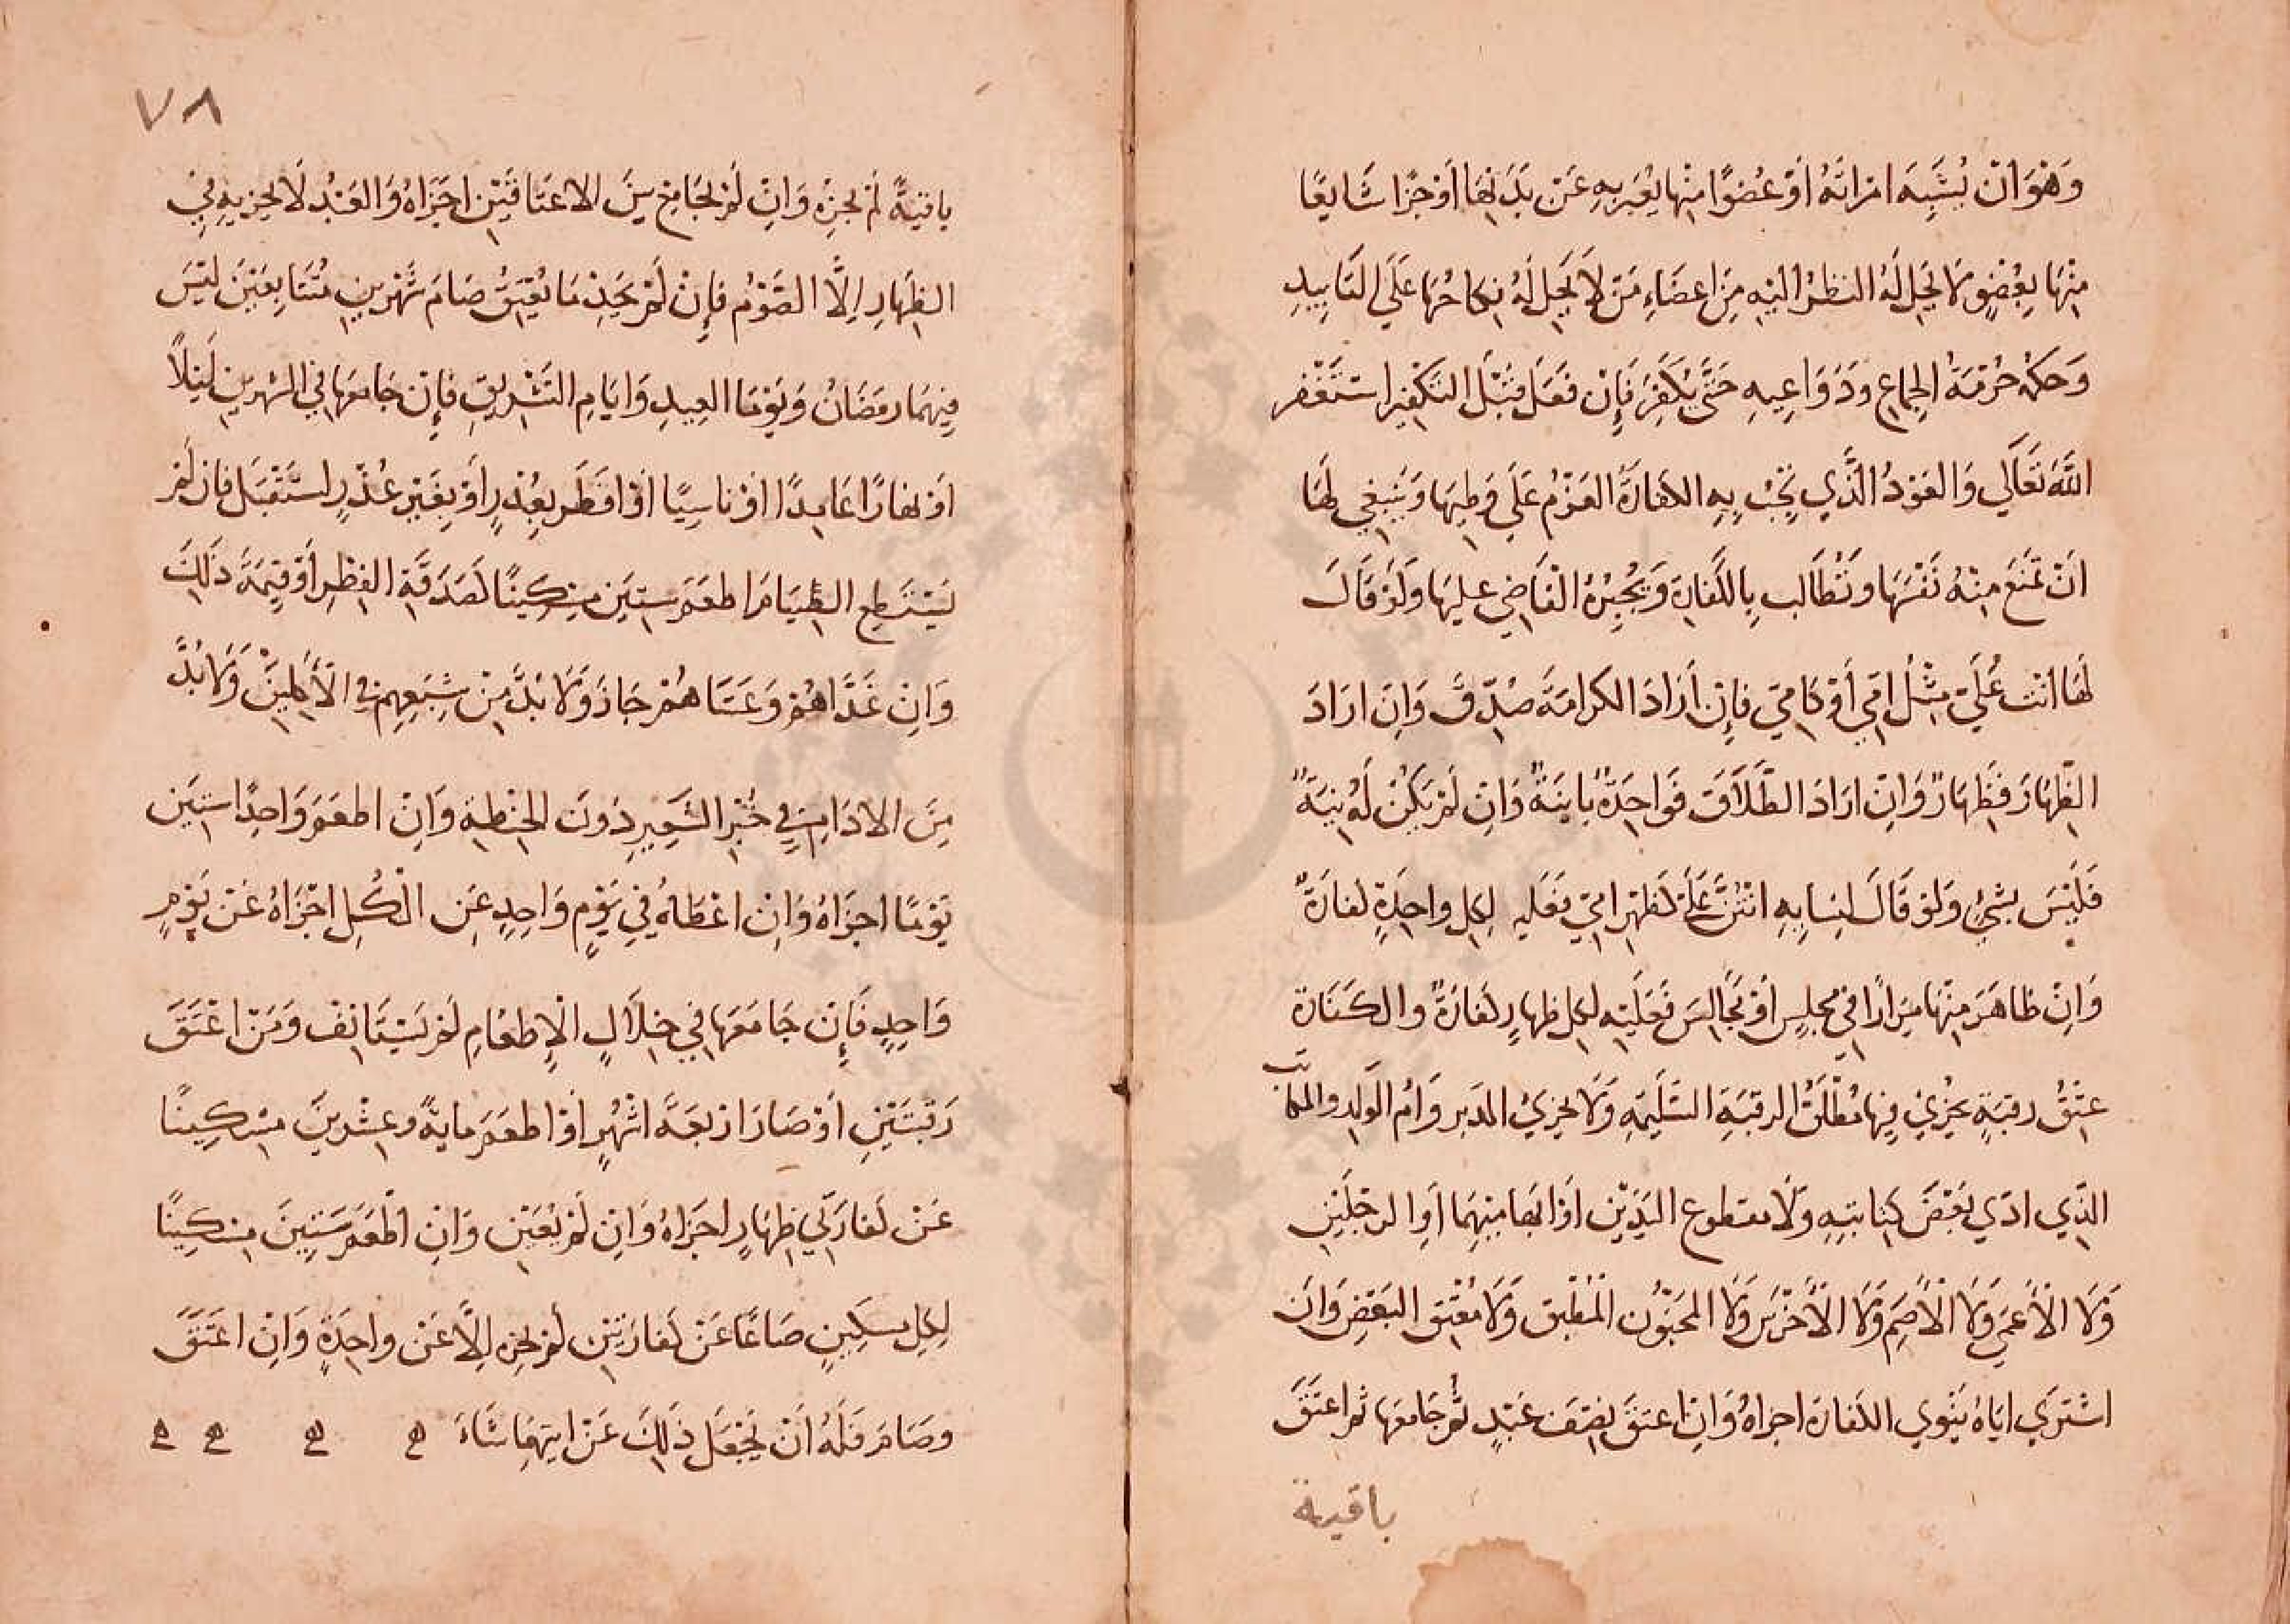 وَهُوَ انْ يُشَبِّهَ امْرَاتَهُ أَوْ عُضْوًا مِنْهَا يُعَبَّر بِهِ عَنْ بَدَنِهَا أَوْ جُزْا شَايِعًا
مِنْهَا بِعُضْوٍ لَا يَحِل لَهُ النظرُ اليْهِ مِنَ اعضَاءِ مَنْ لَا يَحِل لَهُ نِكاحُهَا عَلَي التَابِيدِ
وَحُكمُهُ حُرْمَةُ الجِماعِ ودَوَاعِيهِ حَتَّى يُكَفِرَ فَإِنْ فَعَلَ قَبْلَ التَكْفِيرِ اسْتَغْفر
اللَّهَ تَعَالَي وَالعَوْدُ الَّذِي تَجْب بِهِ الكفارَةُ العَزْمُ عَلَي وَطِيهَا وَيَنْبَغِي لَهَا
انْ تَمْنَعَ مِنْهُ نَفْسَهَا وتُطَالب بِالكَفارَةِ وَيُجْبِرُهُ القَاضِي عليهَا وَلَوْ قَالَ
لَهَا انْت عَلَيّ مِثْلُ امِّي أَوْ كَامِّي فَإِنْ أَرَادَ الكرامَةَ صُدِّقَ وَانِ ارَادَ
الظِّهَارَ فَظِهَارٌ وَانِ ارَادَ الطَّلَاقَ فَوَاحِدَةٌ بَاينَةٌ وَانِ لَمْ يَكُنْ لَهُ نِيَةٌ
فَلَيْسَ بشيْءٍ وَلوْ قَالَ لنِسَايِهِ انْتُنَّ عَلَيَّ كَظَهْرِ امِّي فعَلَيهِ لِكلِ واحِدَةٍ كفارَةٌ
وَانِ ظاهَرَ مِنْهَا مِرَارًا في مجلِسٍ أَوْ مَجَالِسَ فَعَلَيْهِ لِكل ظهارٍ كفارَةٌ والكَفَارَة
عِتْقُ رقبَةٍ يُجْزِئُ فِيهَا مُطْلَقُ الرقبَةِ السَّلِيمَةِ وَلَا يجزِئُ المدَبر وَأمُ الوَلِدِ والمكاتَب
الذِي ادّي بَعْضَ كِتابتِهِ وَلَا مقطوع اليَدَيْنِ أَوْ ابهامَيْهِمَا أَوِ الرجْلَيْنِ
وَلَا الْأَعمَي وَلَا الْأَصَمِ وَلَا الْأَخْرَسَ وَلَا المجَنُون المُطْبق وَلَا مُعْتَق البَعْضِ وَانِ
اشْتَرَي ابَاهُ يَنْوي الكفارَة اجزاهُ وَانِ اعتقَ نِصْفَ عَبْدٍ ثُمَّ جَامعهَا ثم اعتَقَ
باقيه
٧٨
باقيَهُ لَمْ يجزِهُ وَانِ لَمْ يجَامِعْ بيْنَ الاعتَاقَيْنِ اجَزَاهُ وَالعَبْدُ لَا يجزِيهِ في
الظِهَارِ الَّا الصَّوْمُ فَإِنْ لَمْ يَجَدْ مَا يُعْتِقُ صَامَ شَهْرَينِ مُتَتَابِعَيْنَ ليْسَ
فِيهِمَا رمَضَانُ وَيَوْمَا العِيدِ وَايَامِ التَشْرِيقِ فَإِنْ جَامعَهَا في الشهرينِ لَيْلًا
اوْ نهارًا عَامِدًا اوْ ناسِيًا اوْ افَطَر بِعُذْرٍ أَوْ بِغَيْرِ عُذْرٍ استَقْبَلَ فَانِ لَمْ
يَسْتَطِعِ الصِيَامَ اطعَمَ سِتِينَ مِسْكِينًا كصَدَقَةِ الفِطْرِ أَوْ قِيمَةَ ذَلِكَ
وَانِ غَدَّاهُمْ وَعَشَاهُمْ جَازَ وَلَا بُدَّ مِنْ شِبَعِهِمْ في الْأَكْلَتيْنِ وَلَا بُدَّ
مِنَ الادَامِ في خُبْزِ الشَعِيرِ دُونَ الحِنْطَةِ وَانِ اطعَمَ وَاحِدًا ستِين
يَوْمًا اجزَاهُ وَانِ اعْطَاهُ في يَوْمٍ وَاحِدٍ عَنِ الْكُلِ اجْزَاهُ عَنْ يَوْمٍ
وَاحِدٍ فَإِنْ جَامَعَهَا فِي خِلَالِ الْإِطعَامِ لَمْ يَسْتَانِفْ وَمَنْ اعْتَقَ
رَقَبَتَيْنِ أَوْ صَامَ ارْبَعَةَ اشْهُرٍ أَوْ اطعَمَ مايَةً وعِشْرِينَ مِسْكِينًا
عَنْ كفارَتَيْ ظِهَارٍ اجَزَاهُ وَانِ لَمْ يُعَيِن وَانِ اطْعَمَ سِتِينَ مِسْكِينًا
لِكلِ مِسكِينٍ صَاعًا عَنْ كفارَتَيْنِ لَمْ يجزِهِ الَّا عَنْ واحِدَةٍ وَانِ اعتَقَ
وصَامَ فَلَهُ انْ يَجْعَلَ ذَلِكَ عَنْ ايتهِمَا شَاءَ